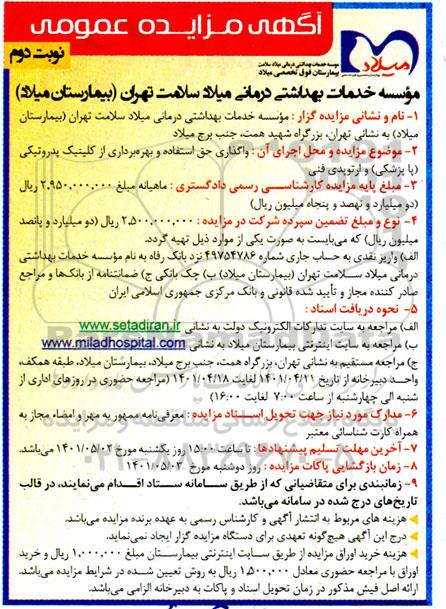 آگهی مزایده عمومی
نوبت دوم
میلاد
موسسه خدمات بهداشتی درمانی میلاد سلامت
بیمارستان فوق تخصصی میلاد
مؤسسه خدمات بهداشتی درمانی میلاد سلامت تهران (بیمارستان میلاد)
۱- نام و نشانی مزایده گزار : مؤسسه خدمات بهداشتی درمانی میلاد سلامت تهران (بیمارستان
میلاد) به نشانی تهران، بزرگراه شهید همت، جنب برج میلاد
۲- موضوع مزایده و محل اجرای آن : واگذاری حق استفاده و بهره‌برداری از کلینیک پدروتیکی
(پا پزشکی) و ارتوپدی فنی
۳- مبلغ پایه مزایده کارشناسی رسمی دادگستری : ماهیانه مبلغ ۲،۹۵۰،۰۰۰،۰۰۰ ریال
(دو میلیارد و نهصد و پنجاه میلیون ریال)
۴- نوع و مبلغ تضمین سپرده شرکت در مزایده : ۲،۵۰۰،۰۰۰،۰۰۰ ریال (دو میلیارد و پانصد
میلیون ریال) که می‌بایست به صورت یکی از موارد ذیل تهیه گردد.
الف) واریز نقدی به حساب جاری شماره ۴۹۷۵۴۷۸۶ نزد بانک رفاه به نام مؤسسه خدمات بهداشتی
درمانی میلاد سلامت تهران (بیمارستان میلاد) ب) چک بانکی ج) ضمانتنامه از بانک‌ها و مراجع
صادر کننده مجاز و تأیید شده قانونی و بانک مرکزی جمهوری اسلامی ایران
۵- نحوه دریافت اسناد :
الف) مراجعه به سایت تدارکات الکترونیک دولت به نشانی www.setadiran.ir
ب) مراجعه به سایت اینترنتی بیمارستان میلاد به نشانی www.miladhospital.com
ج) مراجعه مستقیم به نشانی تهران، بزرگراه همت، جنب برج میلاد، بیمارستان میلاد، طبقه همکف،
واحد دبیرخانه از تاریخ ۱۴۰۱/۰۴/۲۱ لغایت ۱۴۰۱/۰۴/۱۸ (مراجعه حضوری در روزهای اداری از
شنبه الی چهارشنبه از ساعت ۷:۰۰ لغایت ۱۶:۰۰)
۶- مدارک مورد نیاز جهت تحویل اسناد مزایده : معرفی‌نامه ممهور به مهر و امضاء مجاز به
همراه کارت شناسائی معتبر
۷- آخرین مهلت تسلیم پیشنهادها : تا ساعت ۱۵:۰۰ روز یکشنبه مورخ ۱۴۰۱/۰۵/۰۲ می‌باشد.
۸- زمان بازگشایی پاکات مزایده : روز دوشنبه مورخ ۱۴۰۱/۰۵/۰۳
۹- زمانبندی برای متقاضیانی که از طریق سامانه ستاد اقدام می‌نمایند، در قالب
تاریخ‌های درج شده در سامانه می‌باشد.
هزینه های مربوط به انتشار آگهی و کارشناس رسمی به عهده برنده مزایده می‌باشد.
درج این آگهی هیچ‌گونه تعهدی برای دستگاه مزایده گزار ایجاد نمی‌نماید.
هزینه خرید اوراق مزایده از طریق سایت اینترنتی بیمارستان مبلغ ۱،۰۰۰،۰۰۰ ریال و خرید
اوراق با مراجعه حضوری معادل ۱،۵۰۰،۰۰۰ ریال به روش تعیین شده در شرایط مزایده می‌باشد.
ارائه اصل فیش مذکور در زمان تحویل اسناد و پاکات به دبیرخانه الزامی می‌باشد.